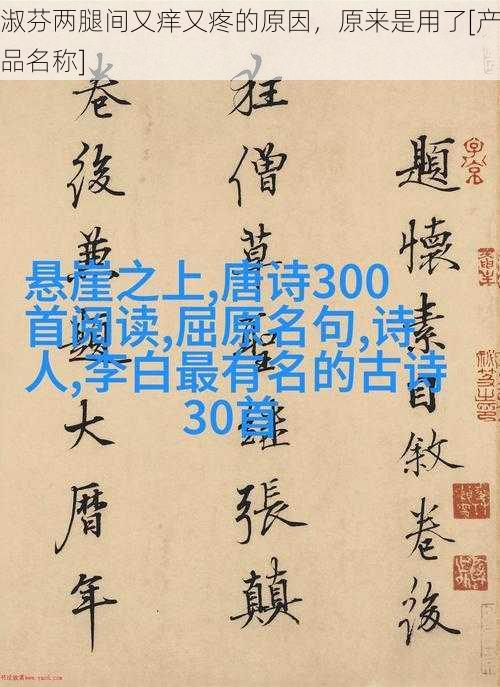 淑芬两腿间又痒又疼的原因，原来是用了[产
品名称]
悬崖之上,唐诗300
首阅读,屈原名句,诗
人,李白最有名的古诗
30首
題懷素自敘卷後
狂僧草聖繼張顛
卷後兼題大曆年